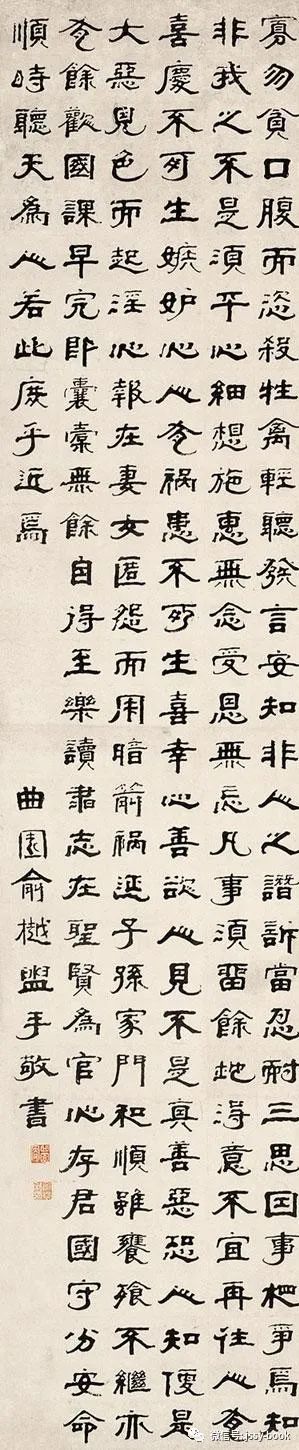 寡勿貪口腹而恣殺牲禽輕聽發言安知非人之譖訴當忍耐三思因事相爭焉知
非我之不是須平心細想施惠無念受恩無忘凡事須留餘地得意不宜再往人有
喜慶不可生嫉妒心人有禍患不可生喜幸心善欲人見不是真善惡恐人知便是
大惡見色而起淫心報在妻女匿怨而用暗箭禍延子孫家門和順雖饔飧不繼亦
有餘歡國課早完即囊橐無餘自得至樂讀書志在聖賢為官心存君國守分安命
順時聽天為人若此庶乎近焉
曲園俞樾盥手敬書
微信号: jssy-book